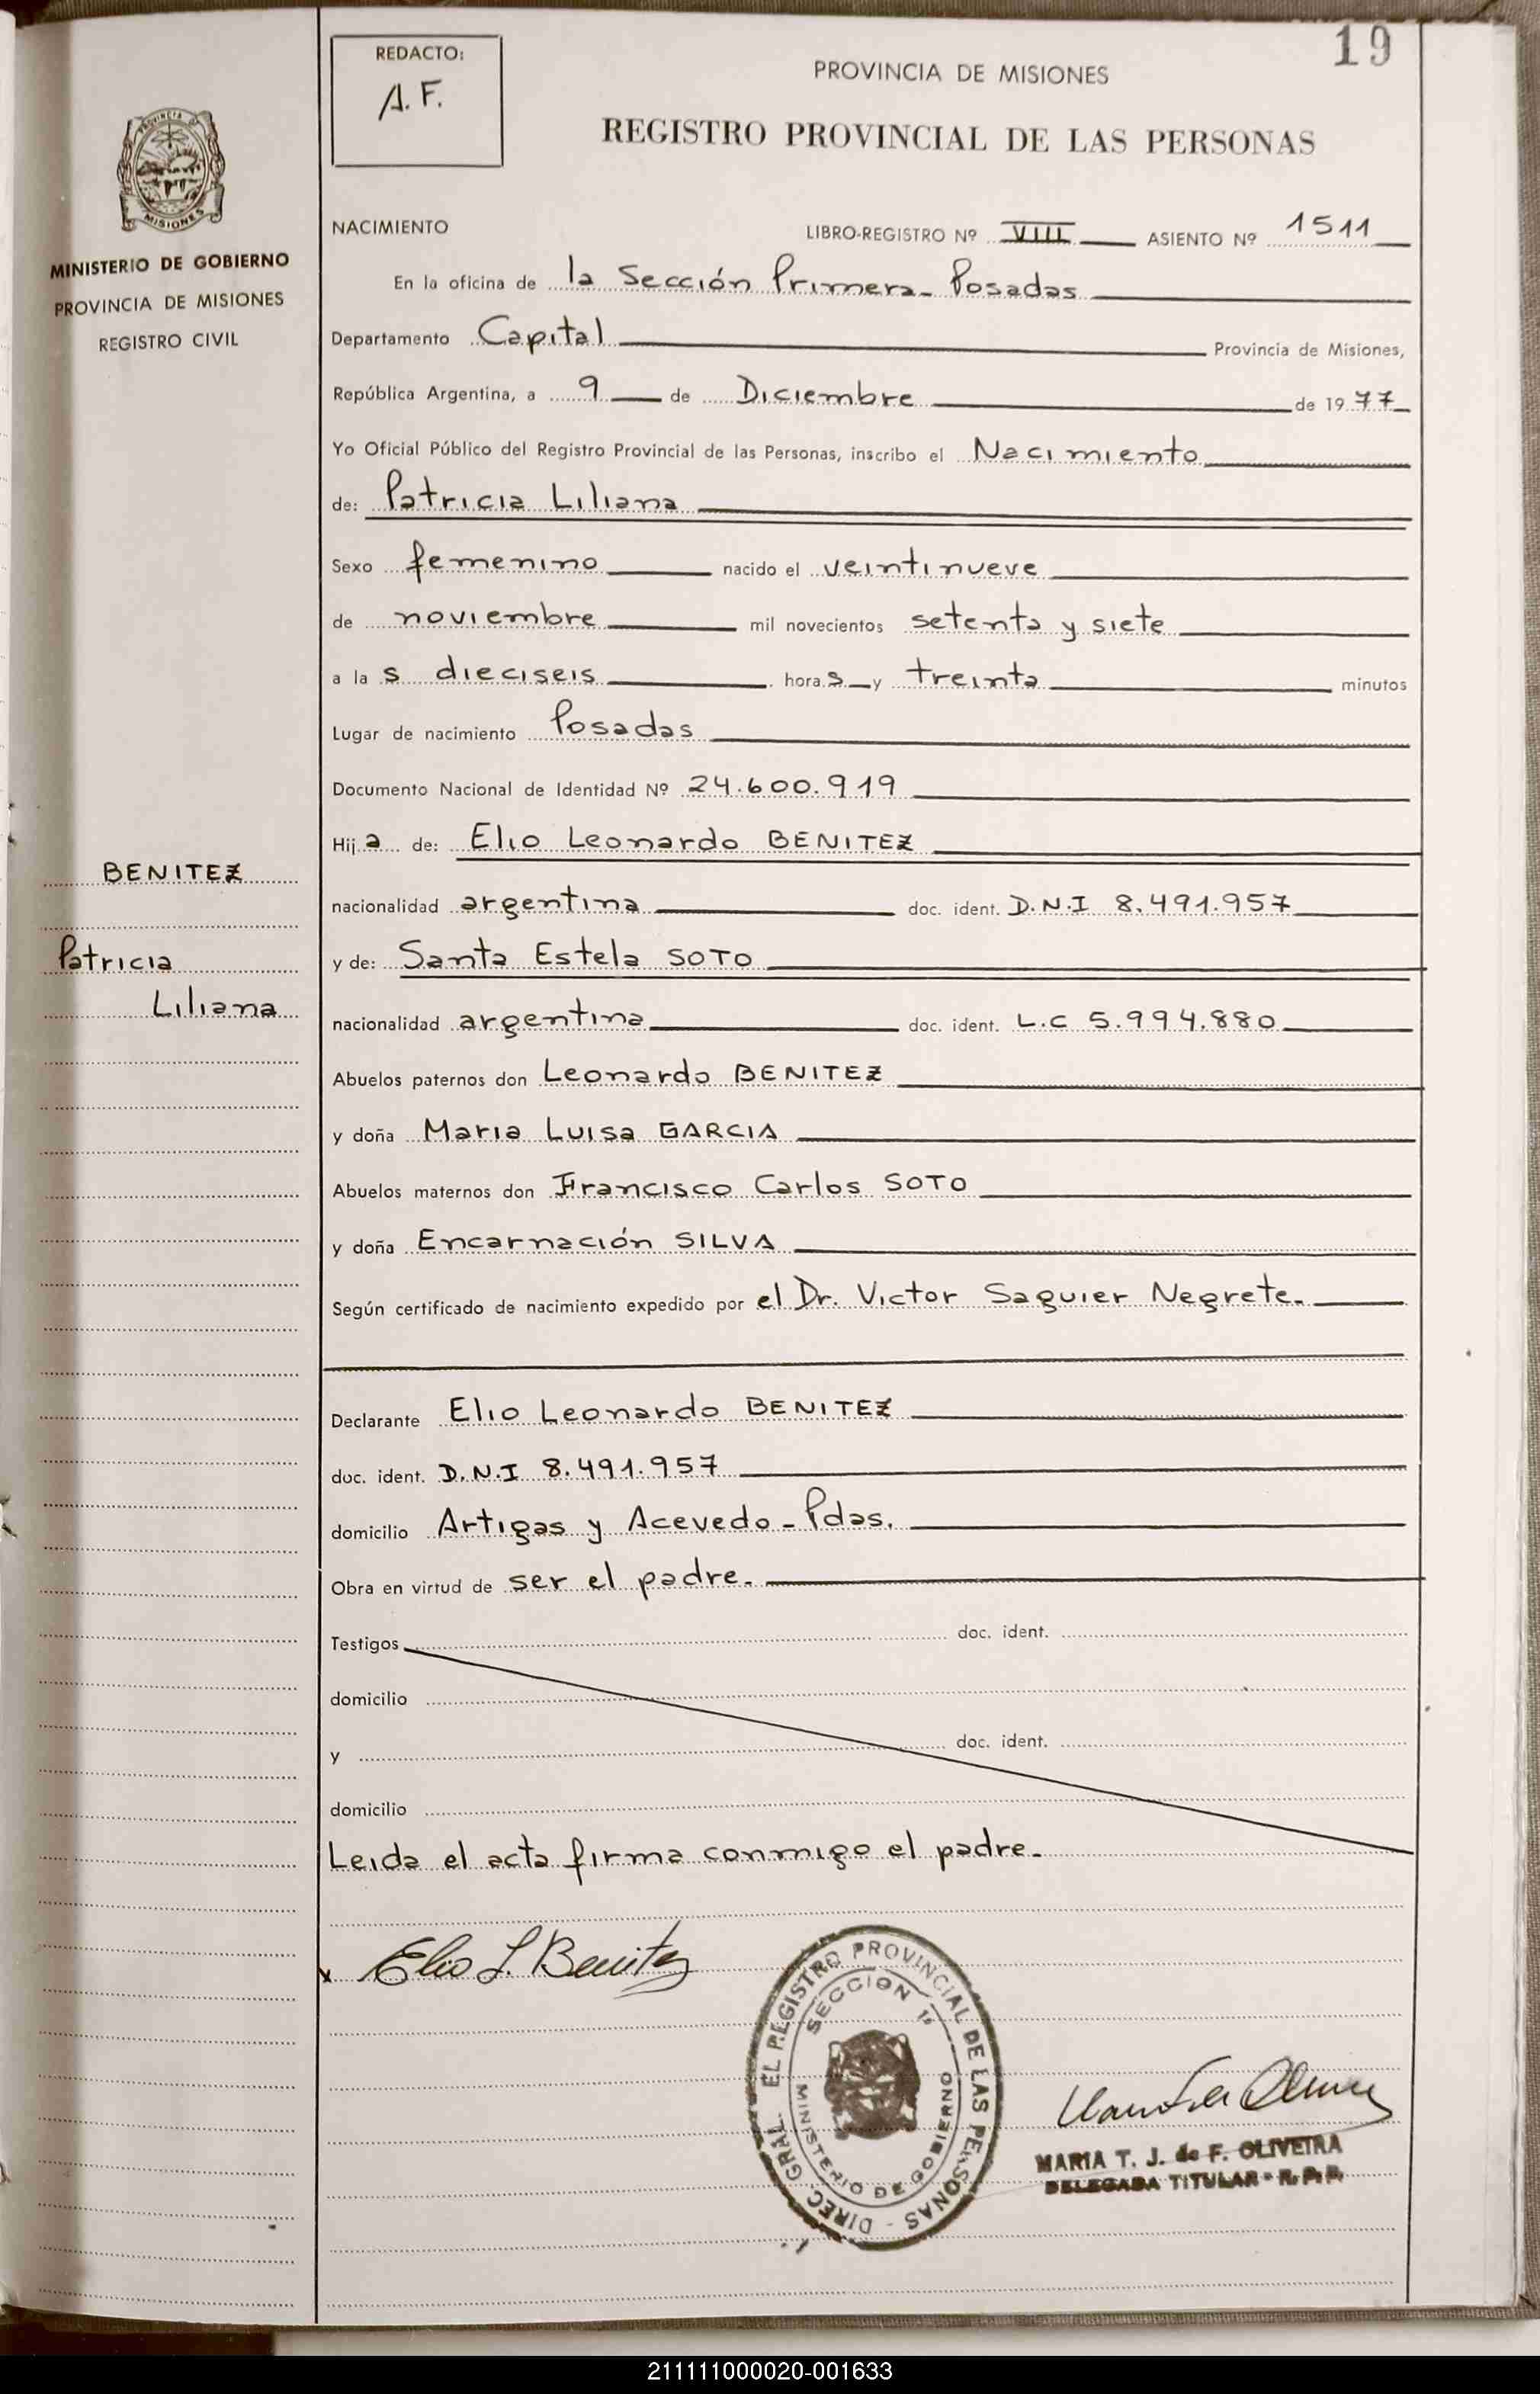 19
REDACTO:
A. F.
PROVINCIA DE MISIONES
REGISTRO PROVINCIAL DE LAS PERSONAS
PROVINCIA D
MISIONES
MINISTERIO DE GOBIERNO
PROVINCIA DE MISIONES
REGISTRO CIVIL
NACIMIENTO LIBRO-REGISTRO Nº VIII ASIENTO Nº 1511
En la oficina de la Sección Primera - Posadas
Departamento Capital Provincia de Misiones,
República Argentina, a 9 de Diciembre de 1977
Yo Oficial Público del Registro Provincial de las Personas, inscribo el Nacimiento
de: Patricia Liliana
Sexo femenino nacido el veintinueve
de noviembre mil novecientos setenta y siete
a las dieciseis horas y treinta minutos
Lugar de nacimiento Posadas
Documento Nacional de Identidad Nº 24.600.919
Hija de: Elio Leonardo BENITEZ
BENITEZ
nacionalidad argentina doc. ident. D.N.I 8.491.957
Patricia
y de: Santa Estela SOTO
Liliana
nacionalidad argentina doc. ident. L.C 5.994.880
Abuelos paternos don Leonardo BENITEZ
y doña Maria Luisa GARCIA
Abuelos maternos don Francisco Carlos SOTO
y doña Encarnación SILVA
Según certificado de nacimiento expedido por el Dr. Victor Saguier Negrete.
Declarante Elio Leonardo BENITEZ
doc. ident. D.N.I 8.491.957
domicilio Artigas y Acevedo - Pdas.
Obra en virtud de ser el padre.
Testigos doc. ident.
domicilio
y doc. ident.
domicilio
Leida el acta firma conmigo el padre.
x Elio L. Benitez
DIREC. GRAL. EL REGISTRO PROVINCIAL DE LAS PERSONAS -
SECCION 1ª
MINISTERIO DE GOBIERNO
MARIA T. J. de F. OLIVEIRA
DELEGADA TITULAR - R. P. P.
211111000020-001633